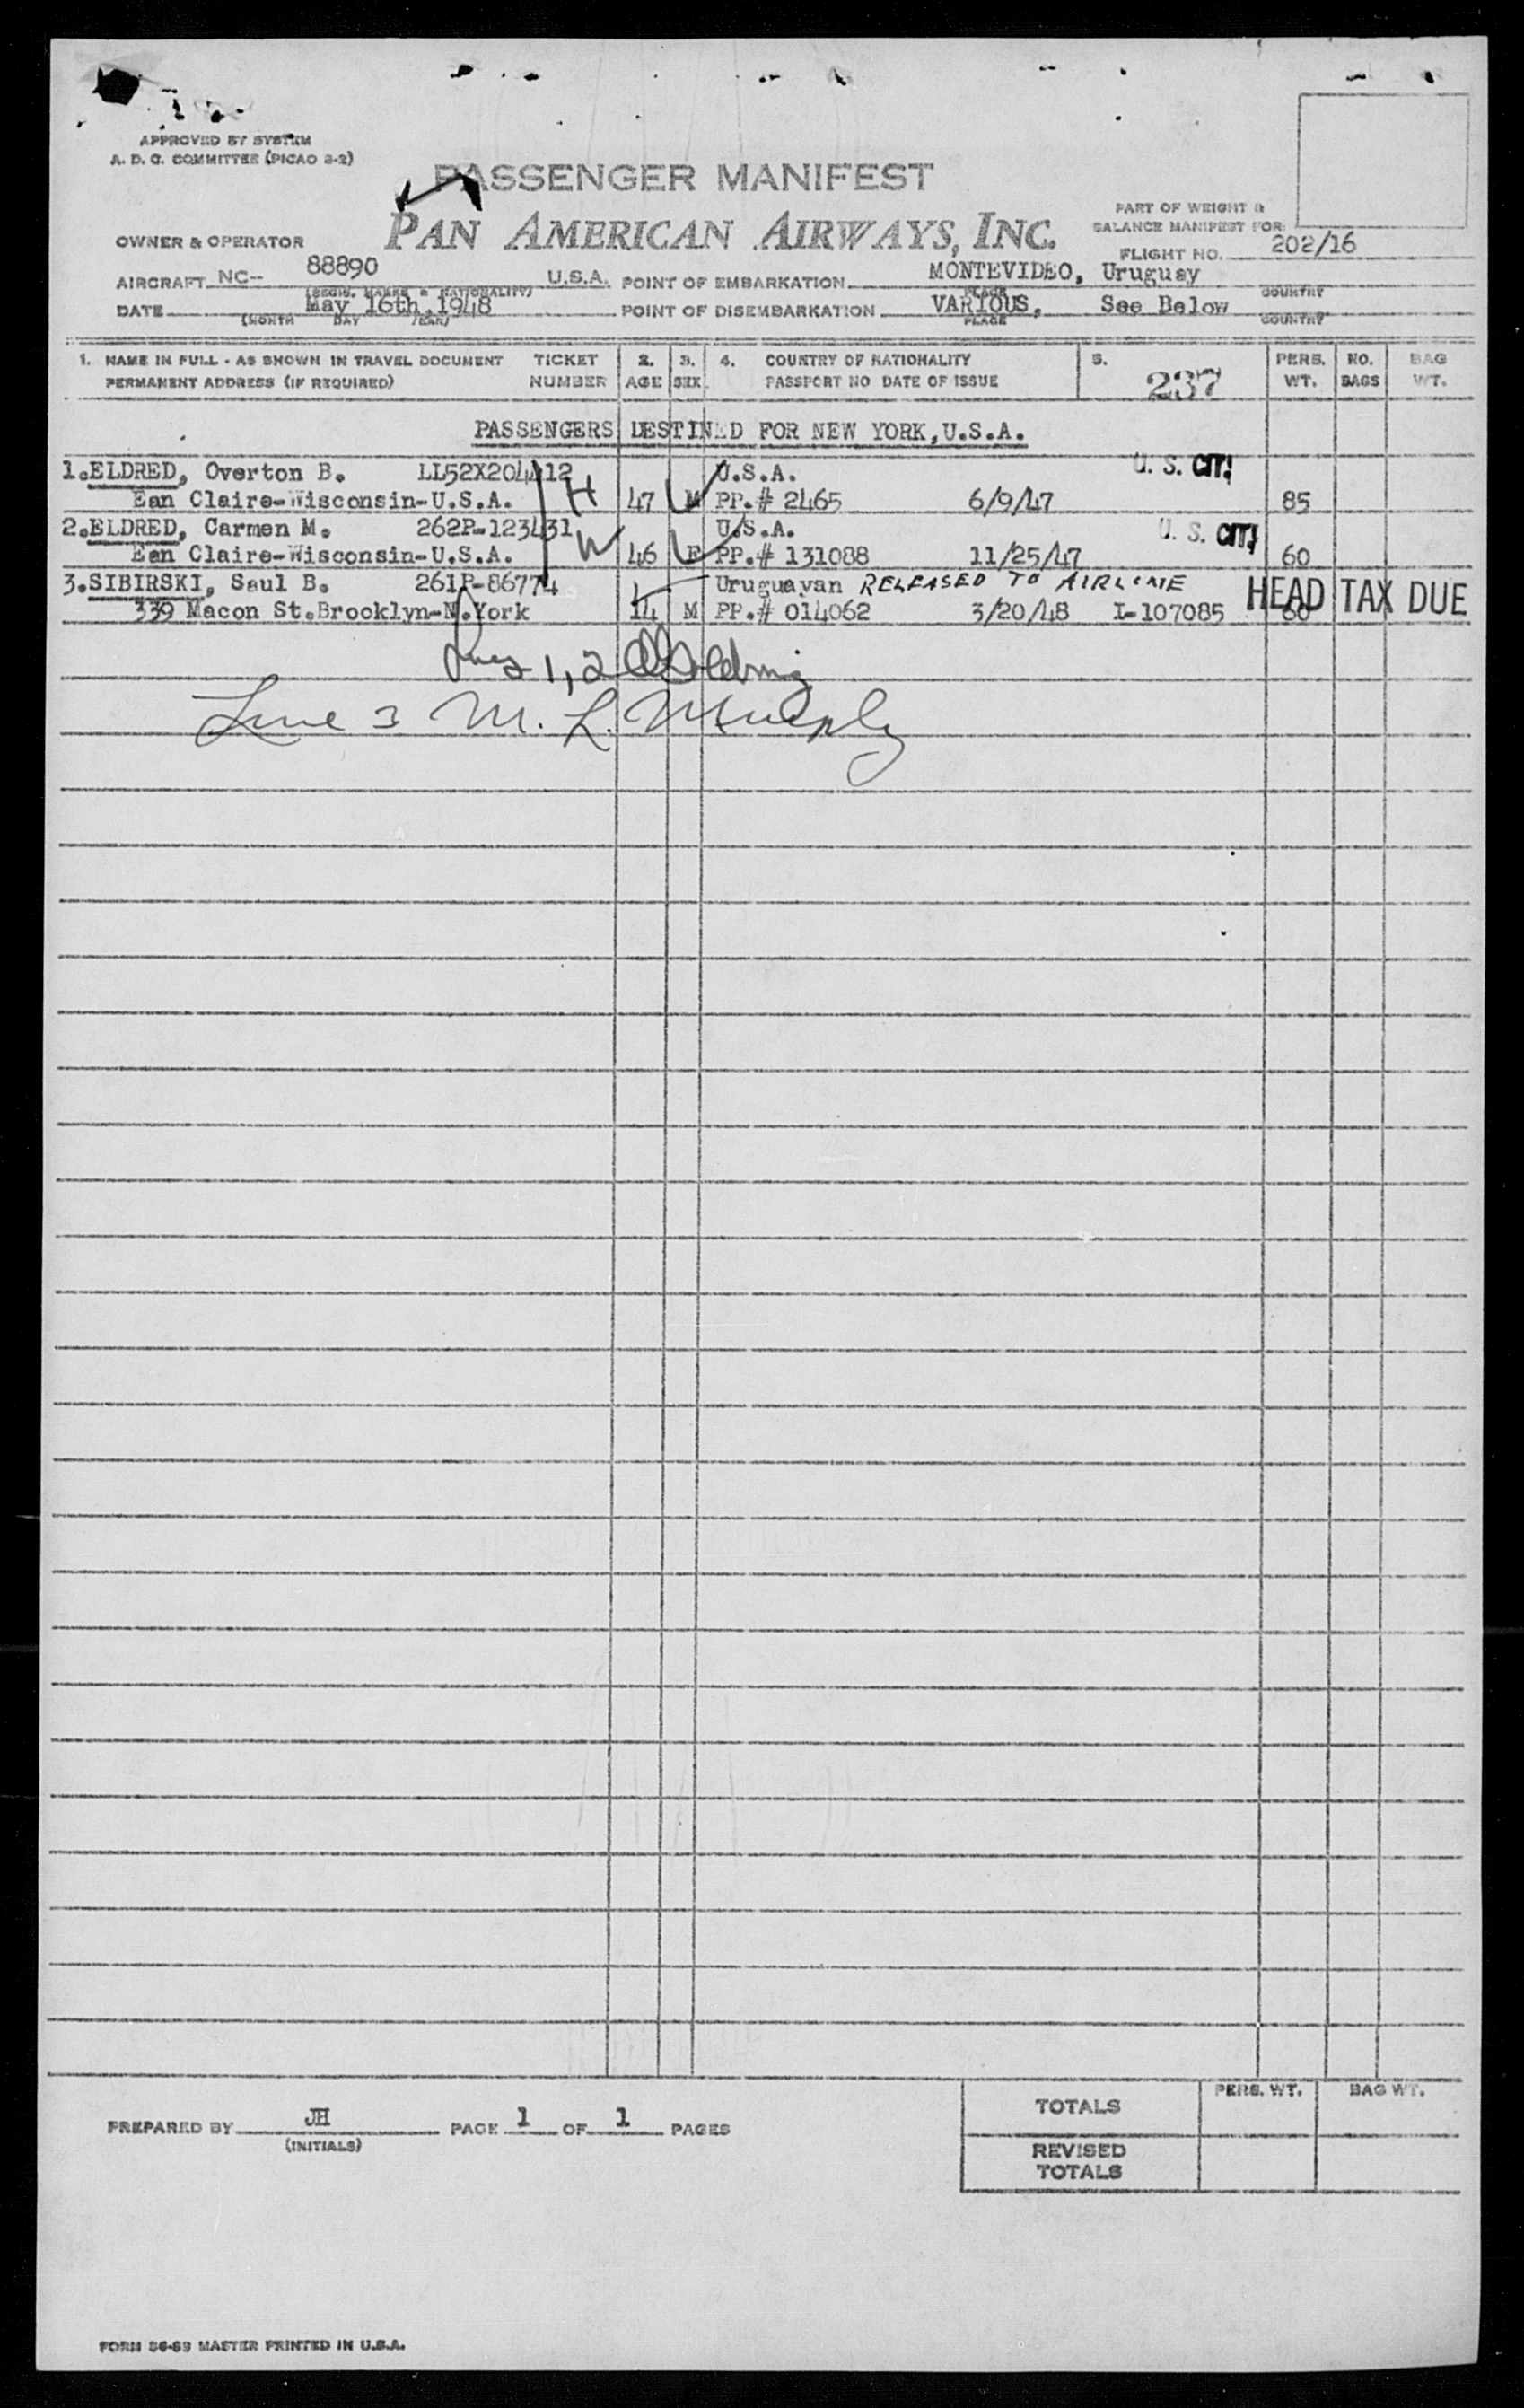 APPROVED BY SYSTEM
A. D. G. COMMITTEE (PICAO 2-2)
PASSENGER MANIFEST
PAN AMERICAN AIRWAYS, INC.
PART OF WEIGHT &
BALANCE MANIFEST FOR:
OWNER & OPERATOR
FLIGHT NO. 202/16
AIRCRAFT NC- 88890 U.S.A. POINT OF EMBARKATION MONTEVIDEO, Uruguay
(REGIS. MARKS & NATIONALITY) PLACE COUNTRY
DATE May 16th, 1948 POINT OF DISEMBARKATION VARIOUS, See Below
(MONTH DAY YEAR) PLACE COUNTRY
1. NAME IN FULL - AS SHOWN IN TRAVEL DOCUMENT TICKET 2. 3. 4. COUNTRY OF NATIONALITY 5. PERS. NO. BAG
PERMANENT ADDRESS (IF REQUIRED) NUMBER AGE SEX PASSPORT NO DATE OF ISSUE 237 WT. BAGS WT.
PASSENGERS DESTINED FOR NEW YORK, U.S.A.
1. ELDRED, Overton B. LL52X204412 U.S.A. U. S. CIT.
Ean Claire-Wisconsin-U.S.A. H 47 M PP.# 2465 6/9/47 85
2. ELDRED, Carmen M. 262P-123431 U.S.A. U. S. CIT.
Ean Claire-Wisconsin-U.S.A. W 46 F PP.# 131088 11/25/47 60
3. SIBIRSKI, Saul B. 261P-86774 Uruguayan RELEASED TO AIRLINE HEAD TAX DUE
339 Macon St. Brooklyn-N.York 14 M PP.# 014062 3/20/48 I-107085 60
1, 2
Line 3 M. L. Murphy
PREPARED BY JH PAGE 1 OF 1 PAGES
(INITIALS)
PERS. WT. BAG WT.
TOTALS
REVISED
TOTALS
FORM 36-69 MASTER PRINTED IN U.S.A.